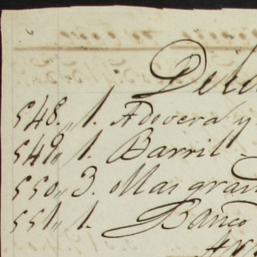 548., 1. Adovera y
549,, 1. Barril
550,, 3. Mas gran
551,, 1. Banco